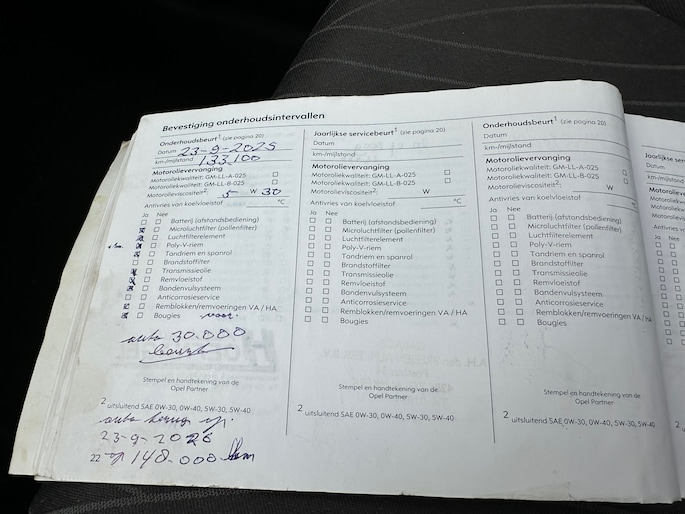 Bevestiging onderhoudsintervallen
Onderhoudsbeurt¹ (zie pagina 20)
Datum 23-9-2025
km-/mijlstand 133,100
Motorolievervanging
Motoroliekwaliteit: GM-LL-A-025
Motoroliekwaliteit: GM-LL-B-025
Motorolieviscositeit²: 5 W 30
Antivries van koelvloeistof °C
Ja Nee
Batterij (afstandsbediening)
Microluchtfilter (pollenfilter)
Luchtfilterelement
Poly-V-riem
Tandriem en spanrol
Brandstoffilter
Transmissieolie
Remvloeistof
Bandenvulsysteem
Anticorrosieservice
Remblokken/remvoeringen VA / HA
Bougies voor
auto 30.000
beurt
Stempel en handtekening van de
Opel Partner
2 uitsluitend SAE 0W-30, 0W-40, 5W-30, 5W-40
auto terug op
23-9-2026
22 op 148.000 km
Jaarlijkse servicebeurt¹ (zie pagina 20)
Datum
km-/mijlstand
Motorolievervanging
Motoroliekwaliteit: GM-LL-A-025
Motoroliekwaliteit: GM-LL-B-025
Motorolieviscositeit²: W
Antivries van koelvloeistof °C
Ja Nee
Batterij (afstandsbediening)
Microluchtfilter (pollenfilter)
Luchtfilterelement
Poly-V-riem
Tandriem en spanrol
Brandstoffilter
Transmissieolie
Remvloeistof
Bandenvulsysteem
Anticorrosieservice
Remblokken/remvoeringen VA / HA
Bougies
Stempel en handtekening van de
Opel Partner
2 uitsluitend SAE 0W-30, 0W-40, 5W-30, 5W-40
Onderhoudsbeurt¹ (zie pagina 20)
Datum
km-/mijlstand
Motorolievervanging
Motoroliekwaliteit: GM-LL-A-025
Motoroliekwaliteit: GM-LL-B-025
Motorolieviscositeit²: W
Antivries van koelvloeistof °C
Ja Nee
Batterij (afstandsbediening)
Microluchtfilter (pollenfilter)
Luchtfilterelement
Poly-V-riem
Tandriem en spanrol
Brandstoffilter
Transmissieolie
Remvloeistof
Bandenvulsysteem
Anticorrosieservice
Remblokken/remvoeringen VA / HA
Bougies
Stempel en handtekening van de
Opel Partner
2 uitsluitend SAE 0W-30, 0W-40, 5W-30, 5W-40
Jaarlijkse servi
Datum
km-/mijlstand
Ja Nee